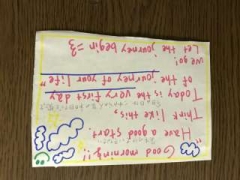 "Good morning!!
Have a good start
Think like this,
Today is the very first day
of the journey of your life"
we go!
Let the journey begin =3